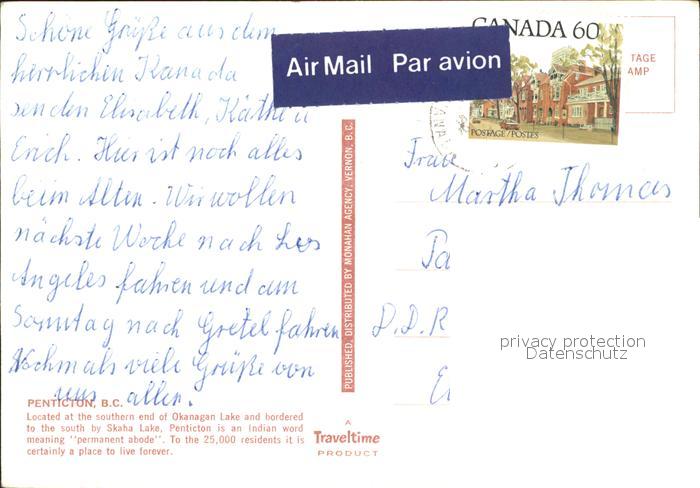 Schöne Grüße aus dem
herrlichen Kanada
senden Elisabeth, Käthe u
Erich. Hier ist noch alles
beim Alten. Wir wollen
nächste Woche nach Los
Angeles fahren und am
Sonntag nach Gretel fahren
Nochmals viele Grüße von
uns allen.
PENTICTON, B.C.
Located at the southern end of Okanagan Lake and bordered
to the south by Skaha Lake, Penticton is an Indian word
meaning "permanent abode". To the 25,000 residents it is
certainly a place to live forever.
PUBLISHED, DISTRIBUTED BY MONAHAN AGENCY, VERNON, B.C.
A
Traveltime
PRODUCT
Air Mail Par avion
CANADA 60
POSTAGE/POSTES
TAGE
AMP
Frau
Martha Thomas
Pa
D.D.R
privacy protection
Datenschutz